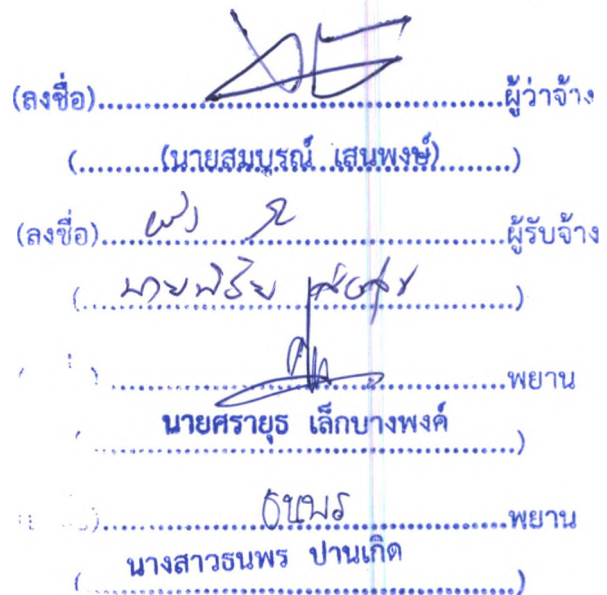 (ลงชื่อ)............................................ผู้ว่าจ้าง
(.........(นายสมบูรณ์ เสนพงษ์).........)
(ลงชื่อ)............................................ผู้รับจ้าง
(....นายพิรัย..........)
............................................พยาน
นายศรายุธ เล็กบางพงค์
(............................................)
ธนพร
)............................................พยาน
นางสาวธนพร ปานเกิด
(............................................)